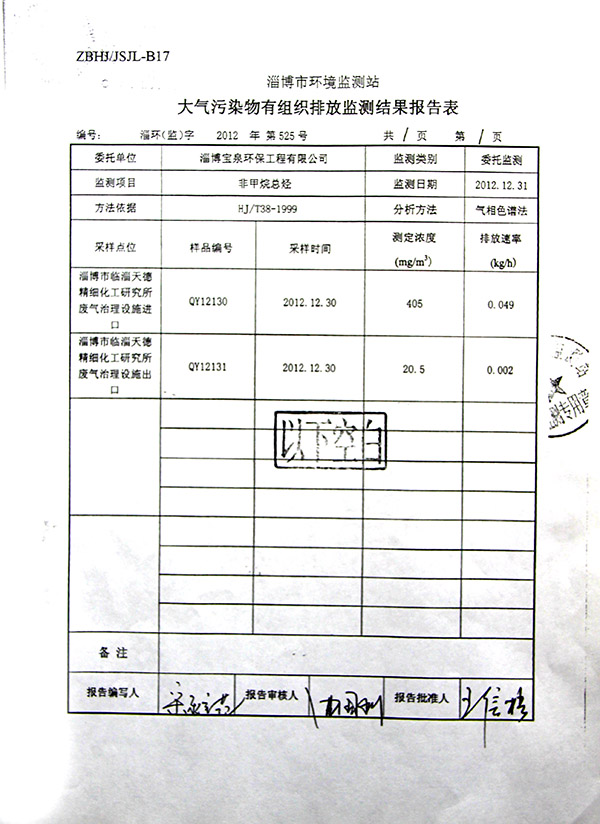 ZBHJ/JSJL-B17
淄博市环境监测站
大气污染物有组织排放监测结果报告表
编号: 淄环(监)字 2012 年 第 525 号 共 1 页 第 1 页
委托单位 淄博宝泉环保工程有限公司 监测类别 委托监测
监测项目 非甲烷总烃 监测日期 2012.12.31
方法依据 HJ/T38-1999 分析方法 气相色谱法
采样点位 样品编号 采样时间 测定浓度 (mg/m³) 排放速率 (kg/h)
淄博市临淄天德
精细化工研究所
废气治理设施进
口
QY12130 2012.12.30 405 0.049
淄博市临淄天德
精细化工研究所
废气治理设施出
口
QY12131 2012.12.30 20.5 0.002
以下空白
备 注
报告编写人 报告审核人 报告批准人 王信格
专用章